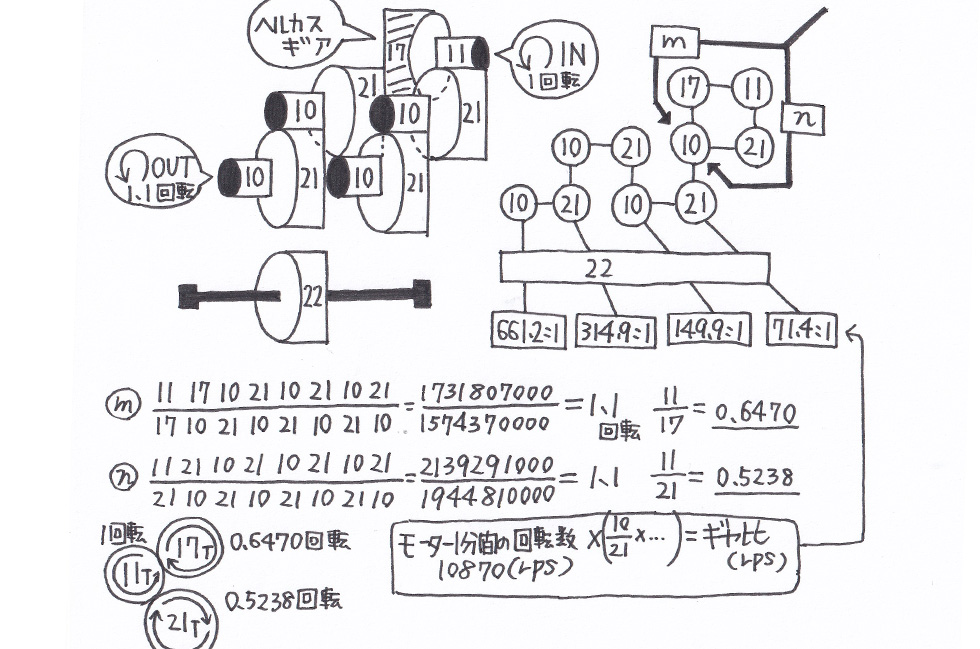 ヘルカス
ギア
17
11
IN
1回転
21
21
10
10
OUT
1.1回転
10
21
10
21
22
m
17
11
n
10
21
10
21
10
21
10
21
22
661.2:1
314.9:1
149.9:1
71.4:1
m 11 17 10 21 10 21 10 21 / 17 10 21 10 21 10 21 10 = 1731807000 / 1574370000 = 1.1 回転 11/17 = 0.6470
n 11 21 10 21 10 21 10 21 / 21 10 21 10 21 10 21 10 = 2139291000 / 1944810000 = 1.1 11/21 = 0.5238
1回転
17T
0.6470回転
11T
0.5238回転
21T
モーター1分間の回転数 × (10/21 × ...) = ギヤ比
10870(rps) (rps)